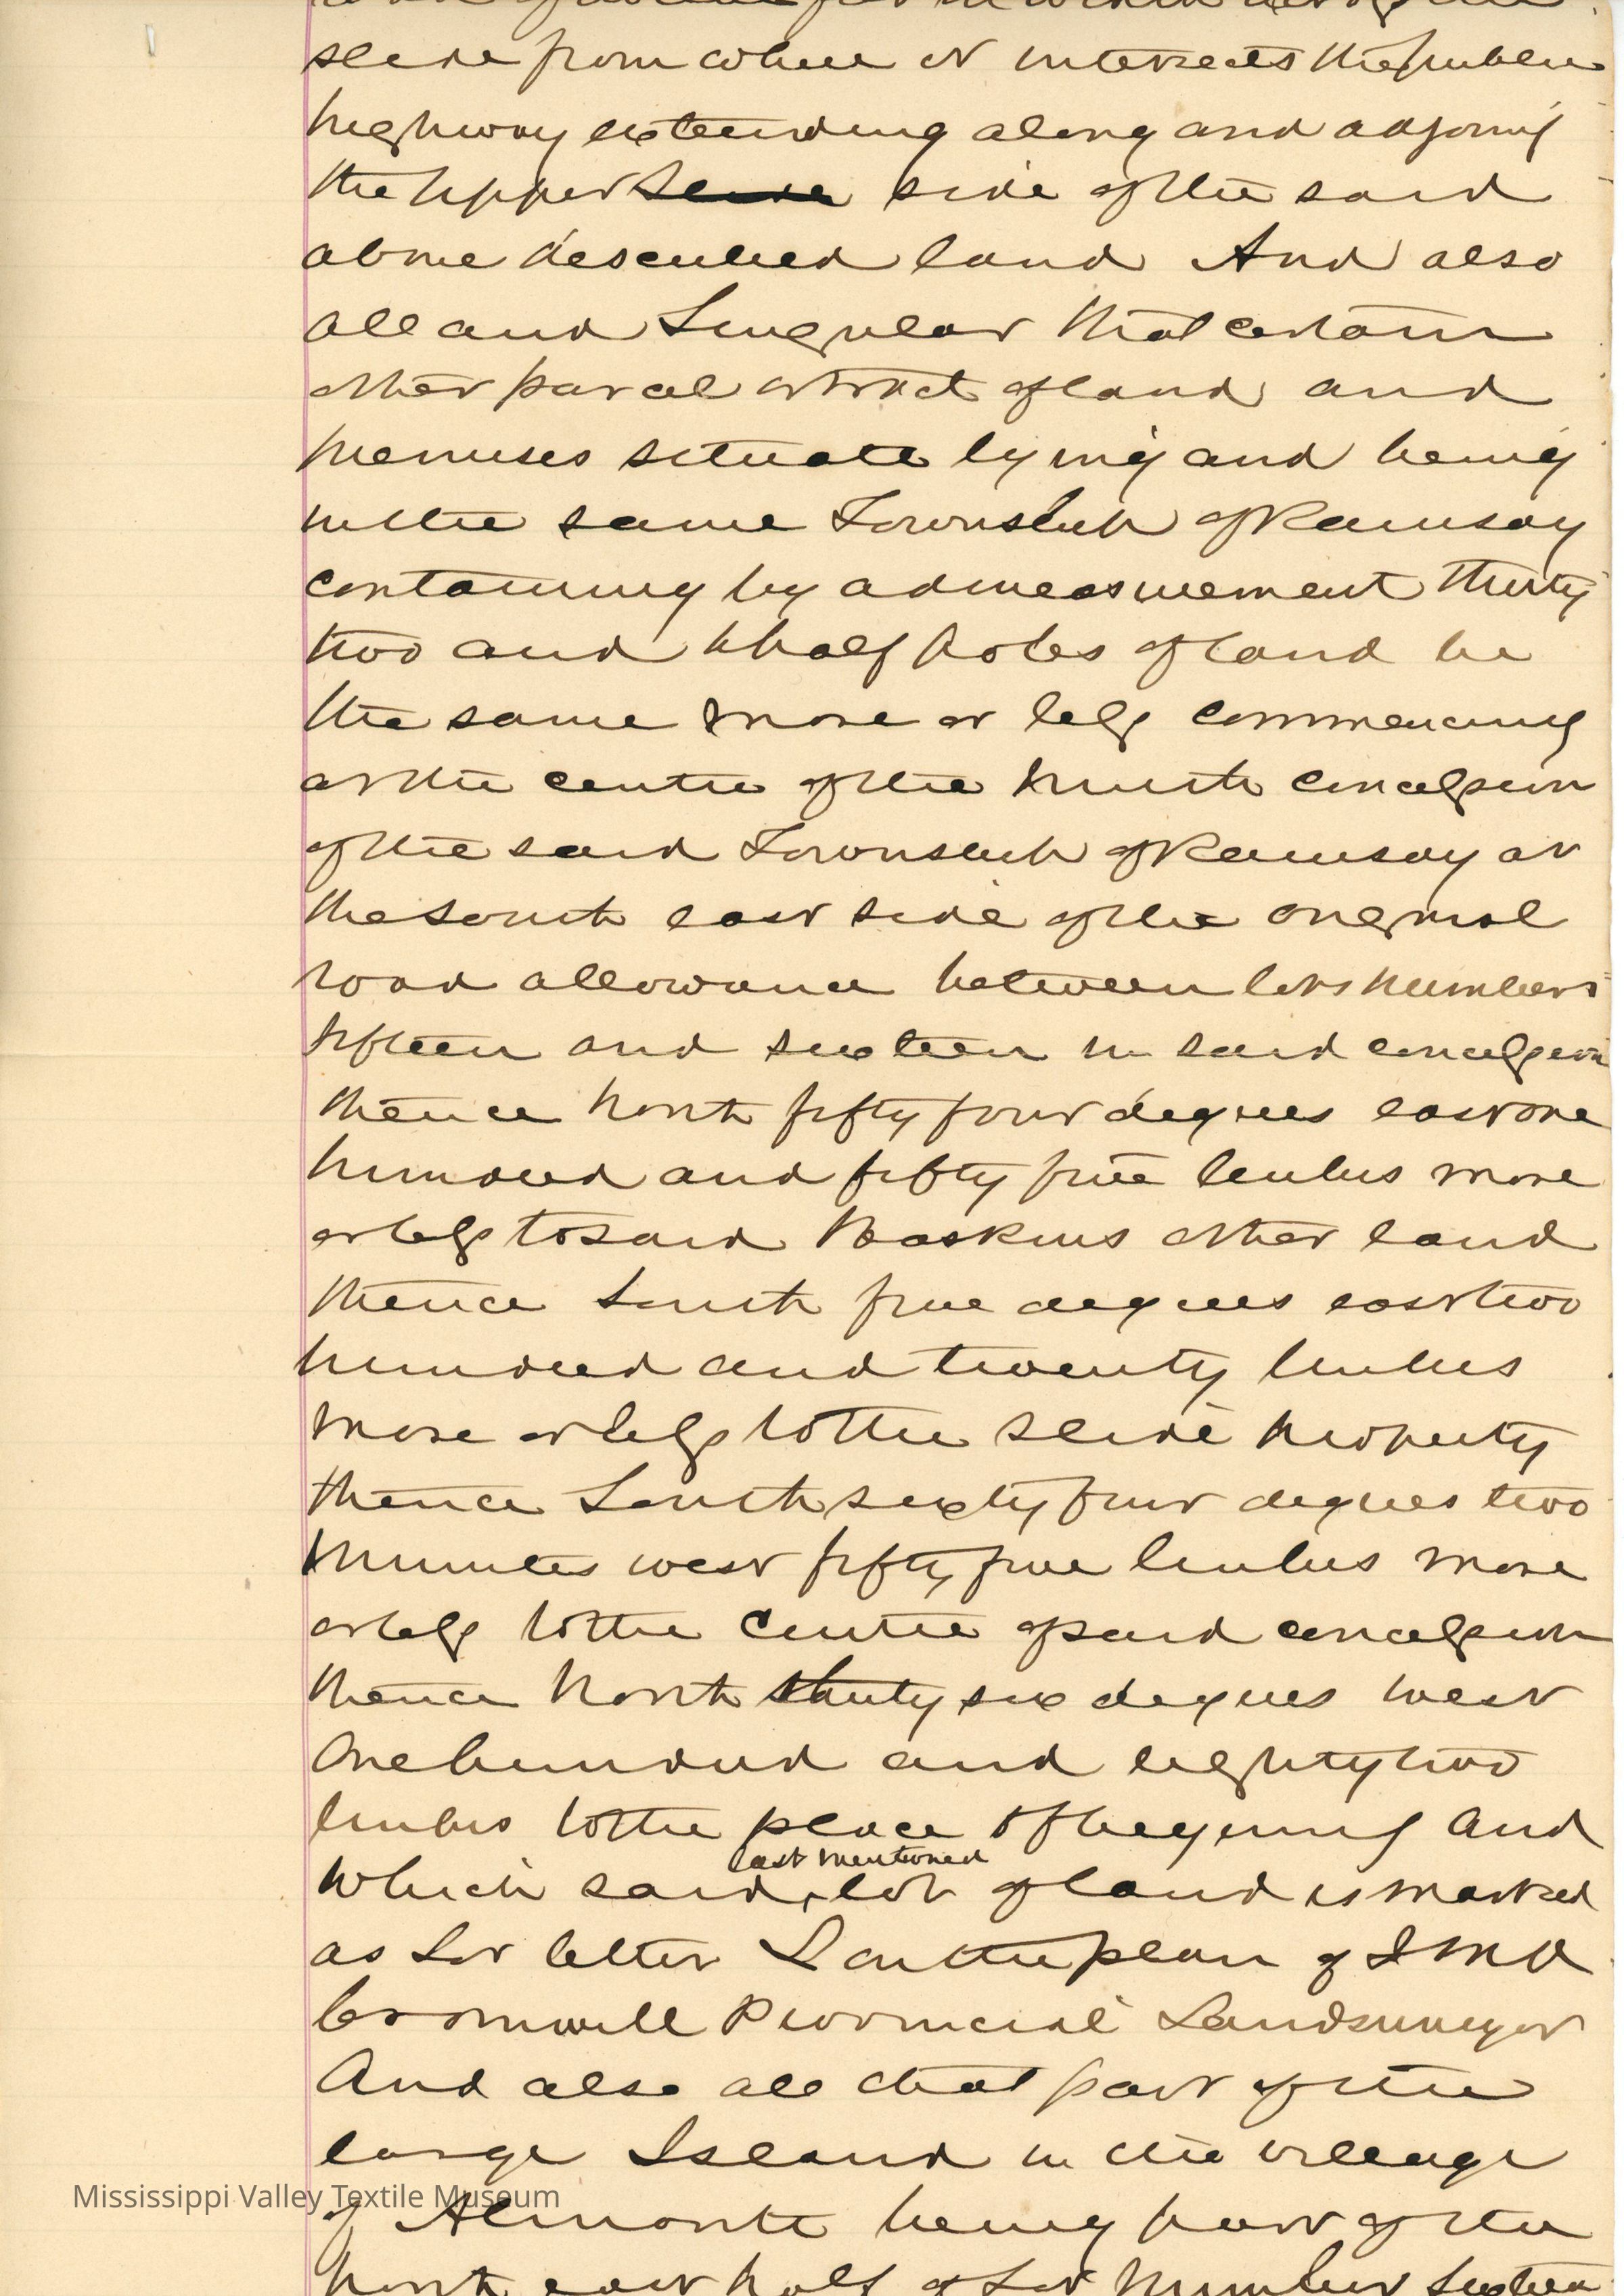 slide from where it intersects the public
highway extending along and adjoing
the upper side of the said
above described land And also
all and Singular that certain
other parcel or tract of land and
premises situate lying and being
in the same Township of Ramsay
containing by admeasurement thirty
two and a half poles of land be
the same more or less commencing
at the centre of the ninth concession
of the said Township of Ramsay at
the South east side of the original
road allowance between lots numbers
fifteen and sixteen in said concession
thence North fifty four degrees east one
hundred and fifty five links more
or less to said Baskins other land
thence South five degrees east two
hundred and twenty links
more or less to the Slide property
thence South sixty four degrees two
minutes west fifty five links more
or less to the Centre of said concession
thence North thirty six degrees west
One hundred and eighty two
links to the place of begining and
last mentioned
which said lot of land is marked
as Lot letter on the plan of
Cromwell Provincial Landsurveyor
And also all that part of the
large Island in the village
of Almonte being part of the
north east half of Lot Number Sixteen
Mississippi Valley Textile Museum